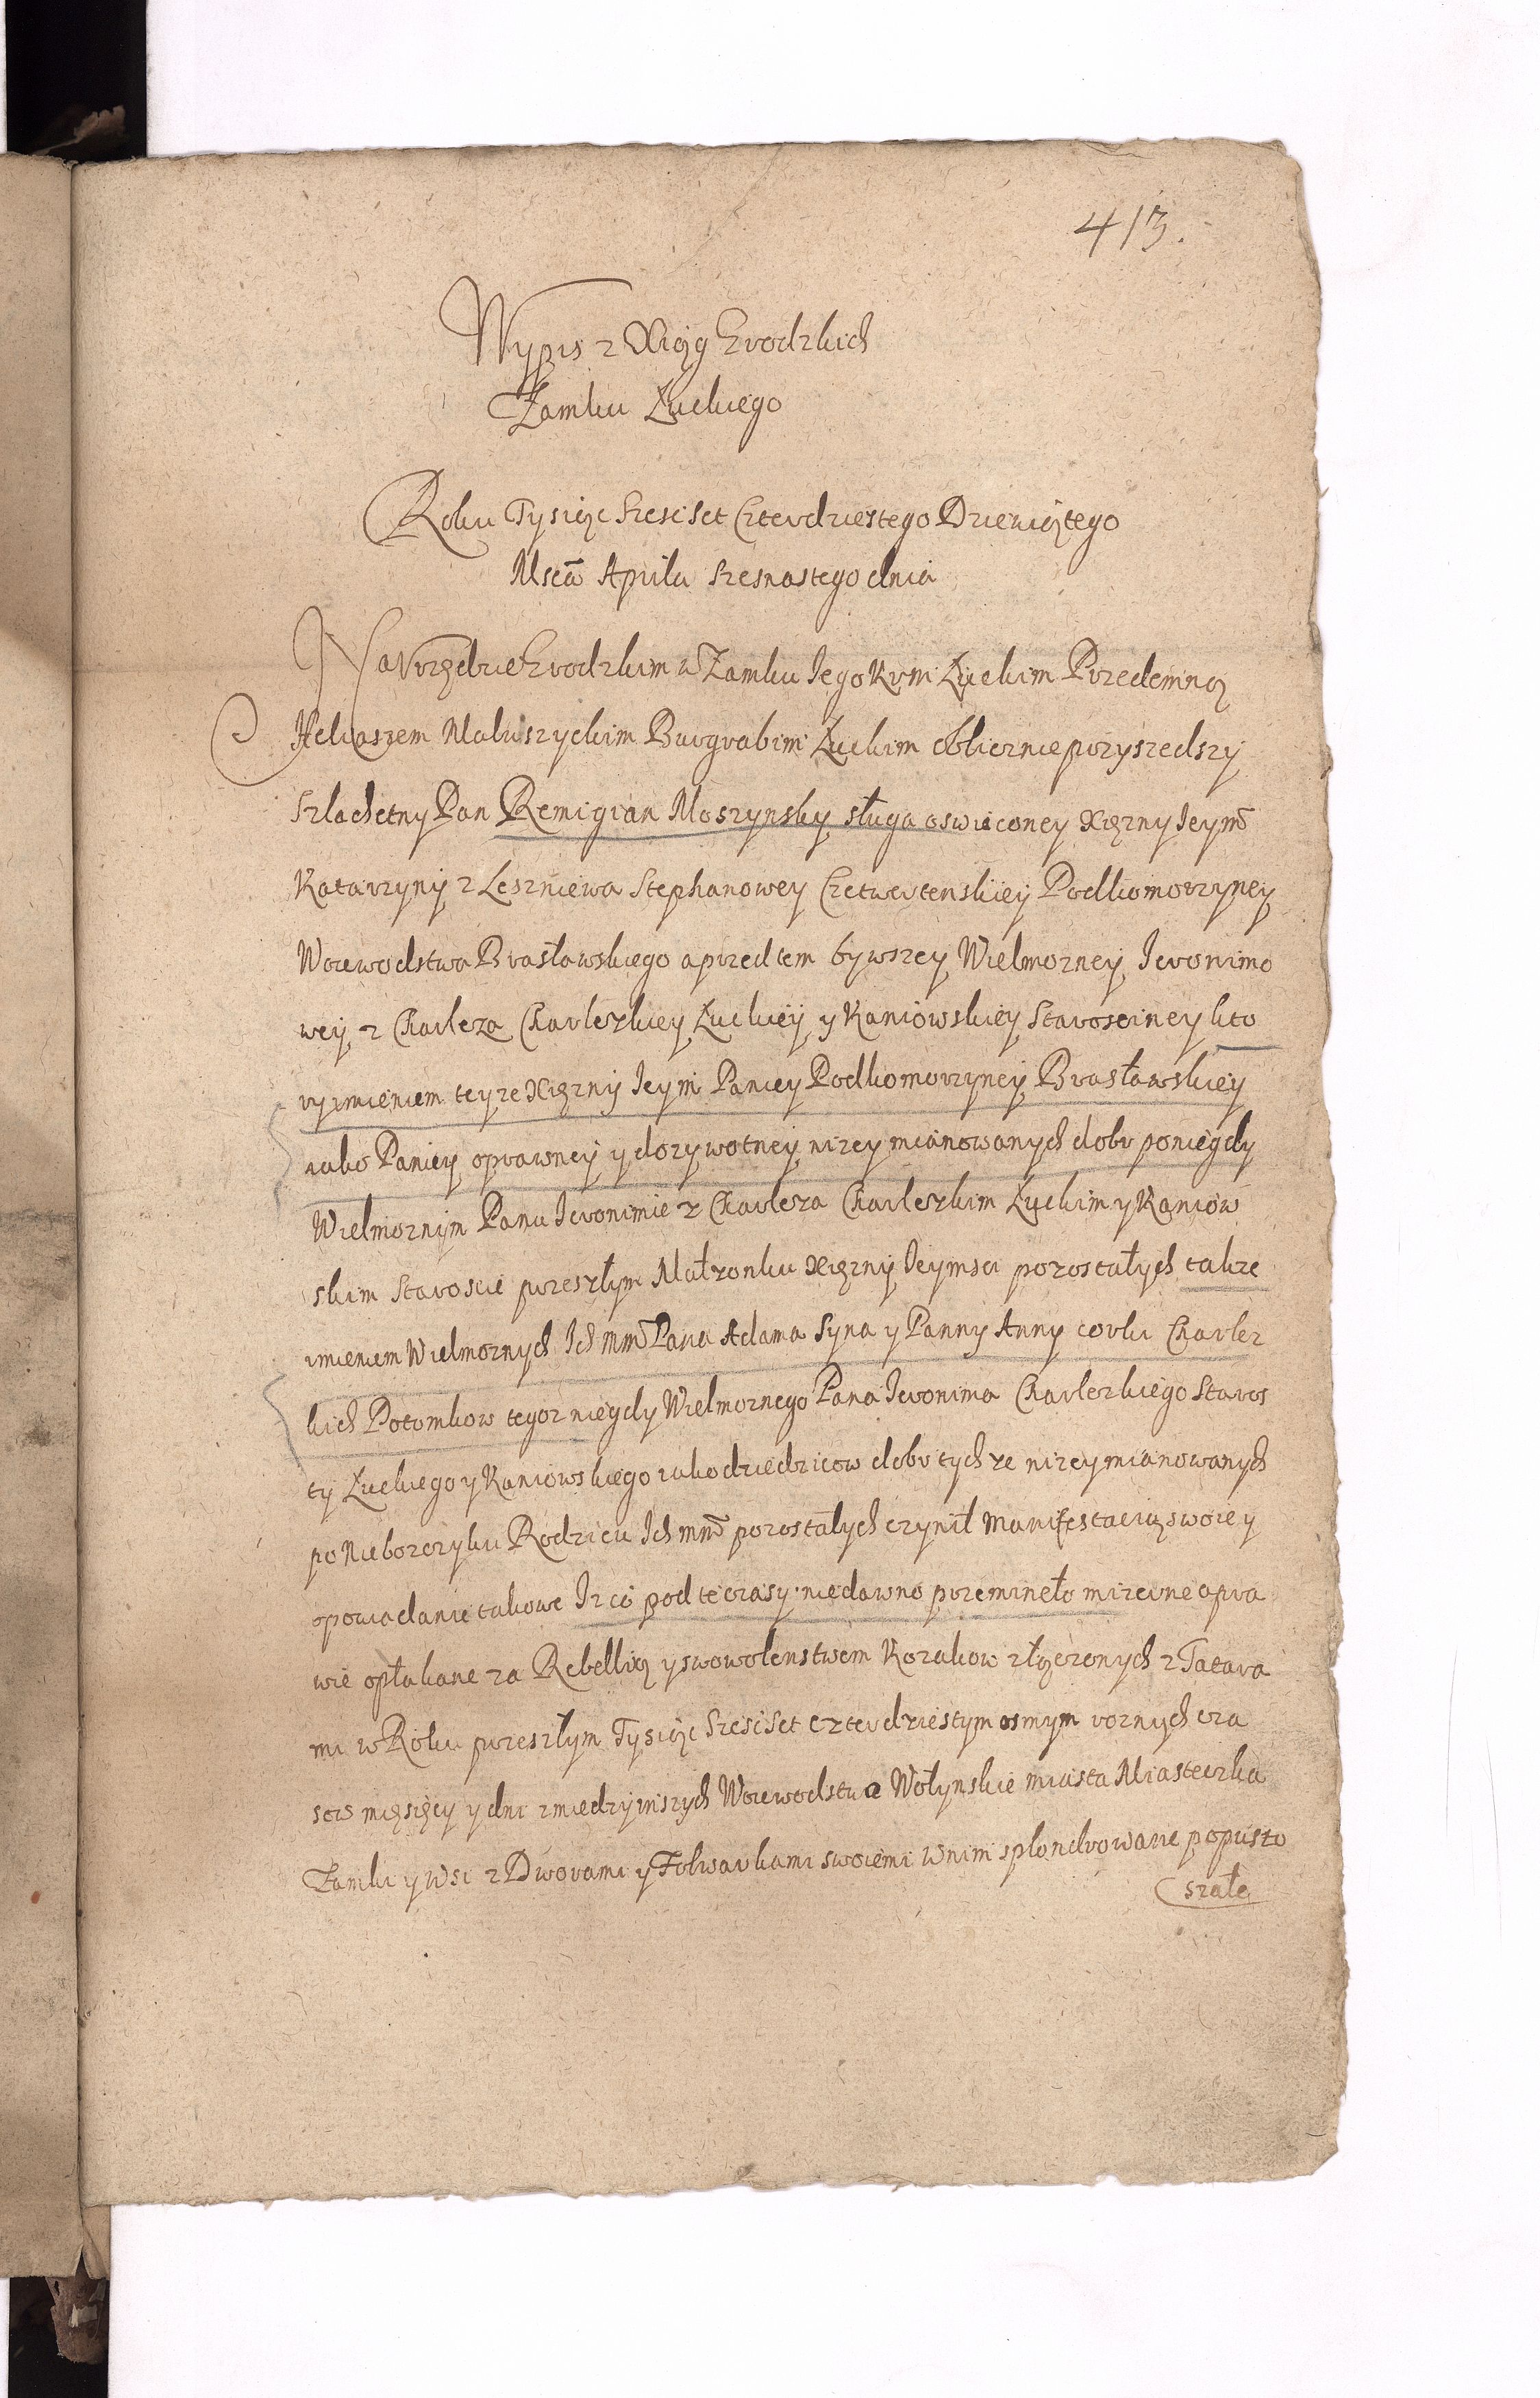 413.
Wypis z Xiąg Grodzkich
Zamku Łuckiego
Roku Tysiąc Szesc Set Czterdziestego Dziewiątego
Mscā Aprila szesnastego dnia
Na Vrzędzie Grodzkim w Zamku Iego Krm Łuckim Przedemną
Maluszyckim Burgrabim Łuckim oblicznie przyszedszy
Szlachetny Pan Remigian Moszynsky sługa oswieconey Xiężny Ieym
Katarzyny z Leszniewa Stephanowey Czetwertenskiey Podkomorzyney
Woiewodstwa Brasławskiego a przed tem bywszey Wielmozney Ieronimo
wey z Charleza Charlezkiey Łuckiey y Kaniowskiey Starosciney kto
ry imieniem teyze Xięzny Ieym Paniey Podkomorzyney Brasławskiey
iako Paniey oprawney y dozywotney nizey mianowanych dobr po niegdy
Wielmoznym Panu Ieronimie z Charleza Charlezkim Łuckim y Kaniow
skim Staroscie przeszłym Małzonku Xięzny Ieymsci pozostałych takze
imieniem Wielmoznych Ich Mm Pana Adama Syna y Panny Anny corki Charlez
kich Potomkow tegoz niegdy Wielmoznego Pana Ieronima Charlezkiego Staros
ty Łuckiego y Kaniowskiego iako dziedzicow dobr tych ze nizey mianowanych
po Nieboszczyku Rodzicu Ich mm pozostałych czynił manifestacią swoie y
opowiadanie takowe Iz co pod te czasy niedawno przemineło mizerne apra
wie opłakane za Rebellią y swowolenstwem Kozakow złączonych z Tatara
mi w Roku przeszłym Tysiąc Szesc Set czterdziestym osmym roznych cza
sow miesięcy y dni z miedzy inszych Woiewodstwa Wołynskie miasta Miasteczka
Zamki y Wsi z Dworami y Folwarkami swoiemi w nim splondrowane popusto
szałe